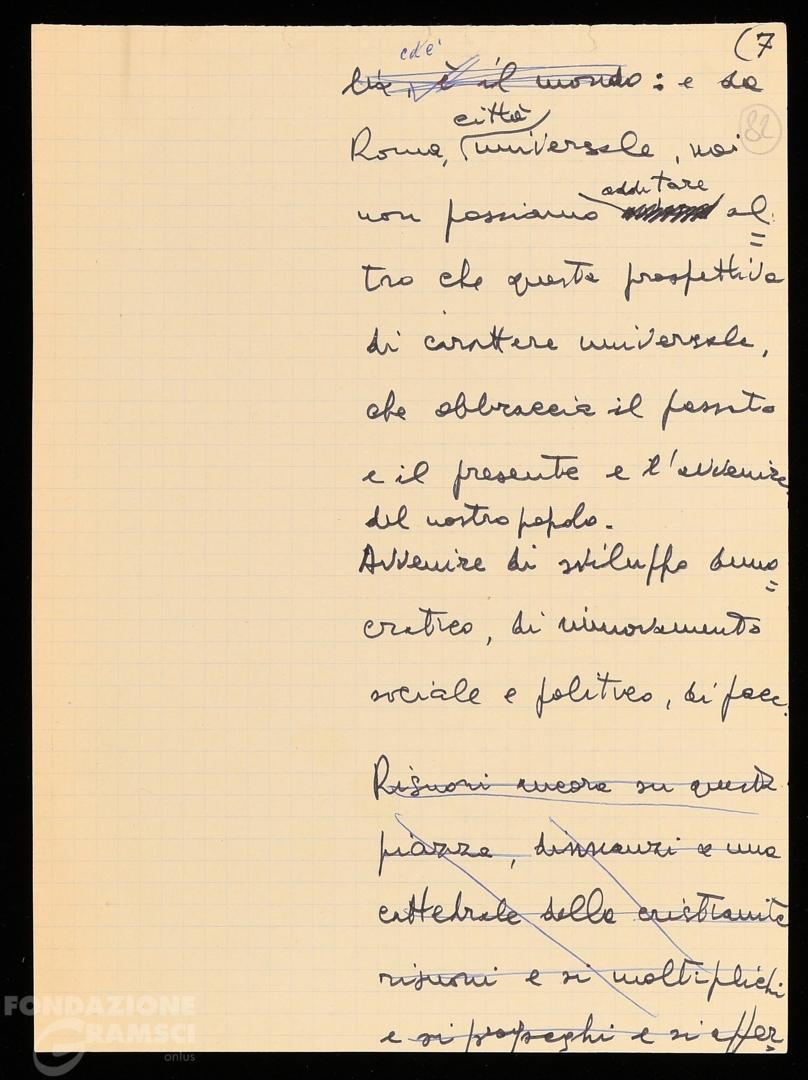 (7
82
ed è
lia, è il mondo: e da
città
Roma, universale, noi
additare
non possiamo al=
tro che questa prospettiva
di carattere universale,
che abbraccia il passato
e il presente e l'avvenire
del nostro popolo.
Avvenire di sviluppo demo=
cratico, di rinnovamento
sociale e politico, di pace.
Risuoni ancora su questa
piazza, dinnanzi a una
cattedrale della cristianità
risuoni e si moltiplichi
e si propaghi e si affer=
FONDAZIONE
GRAMSCI
onlus